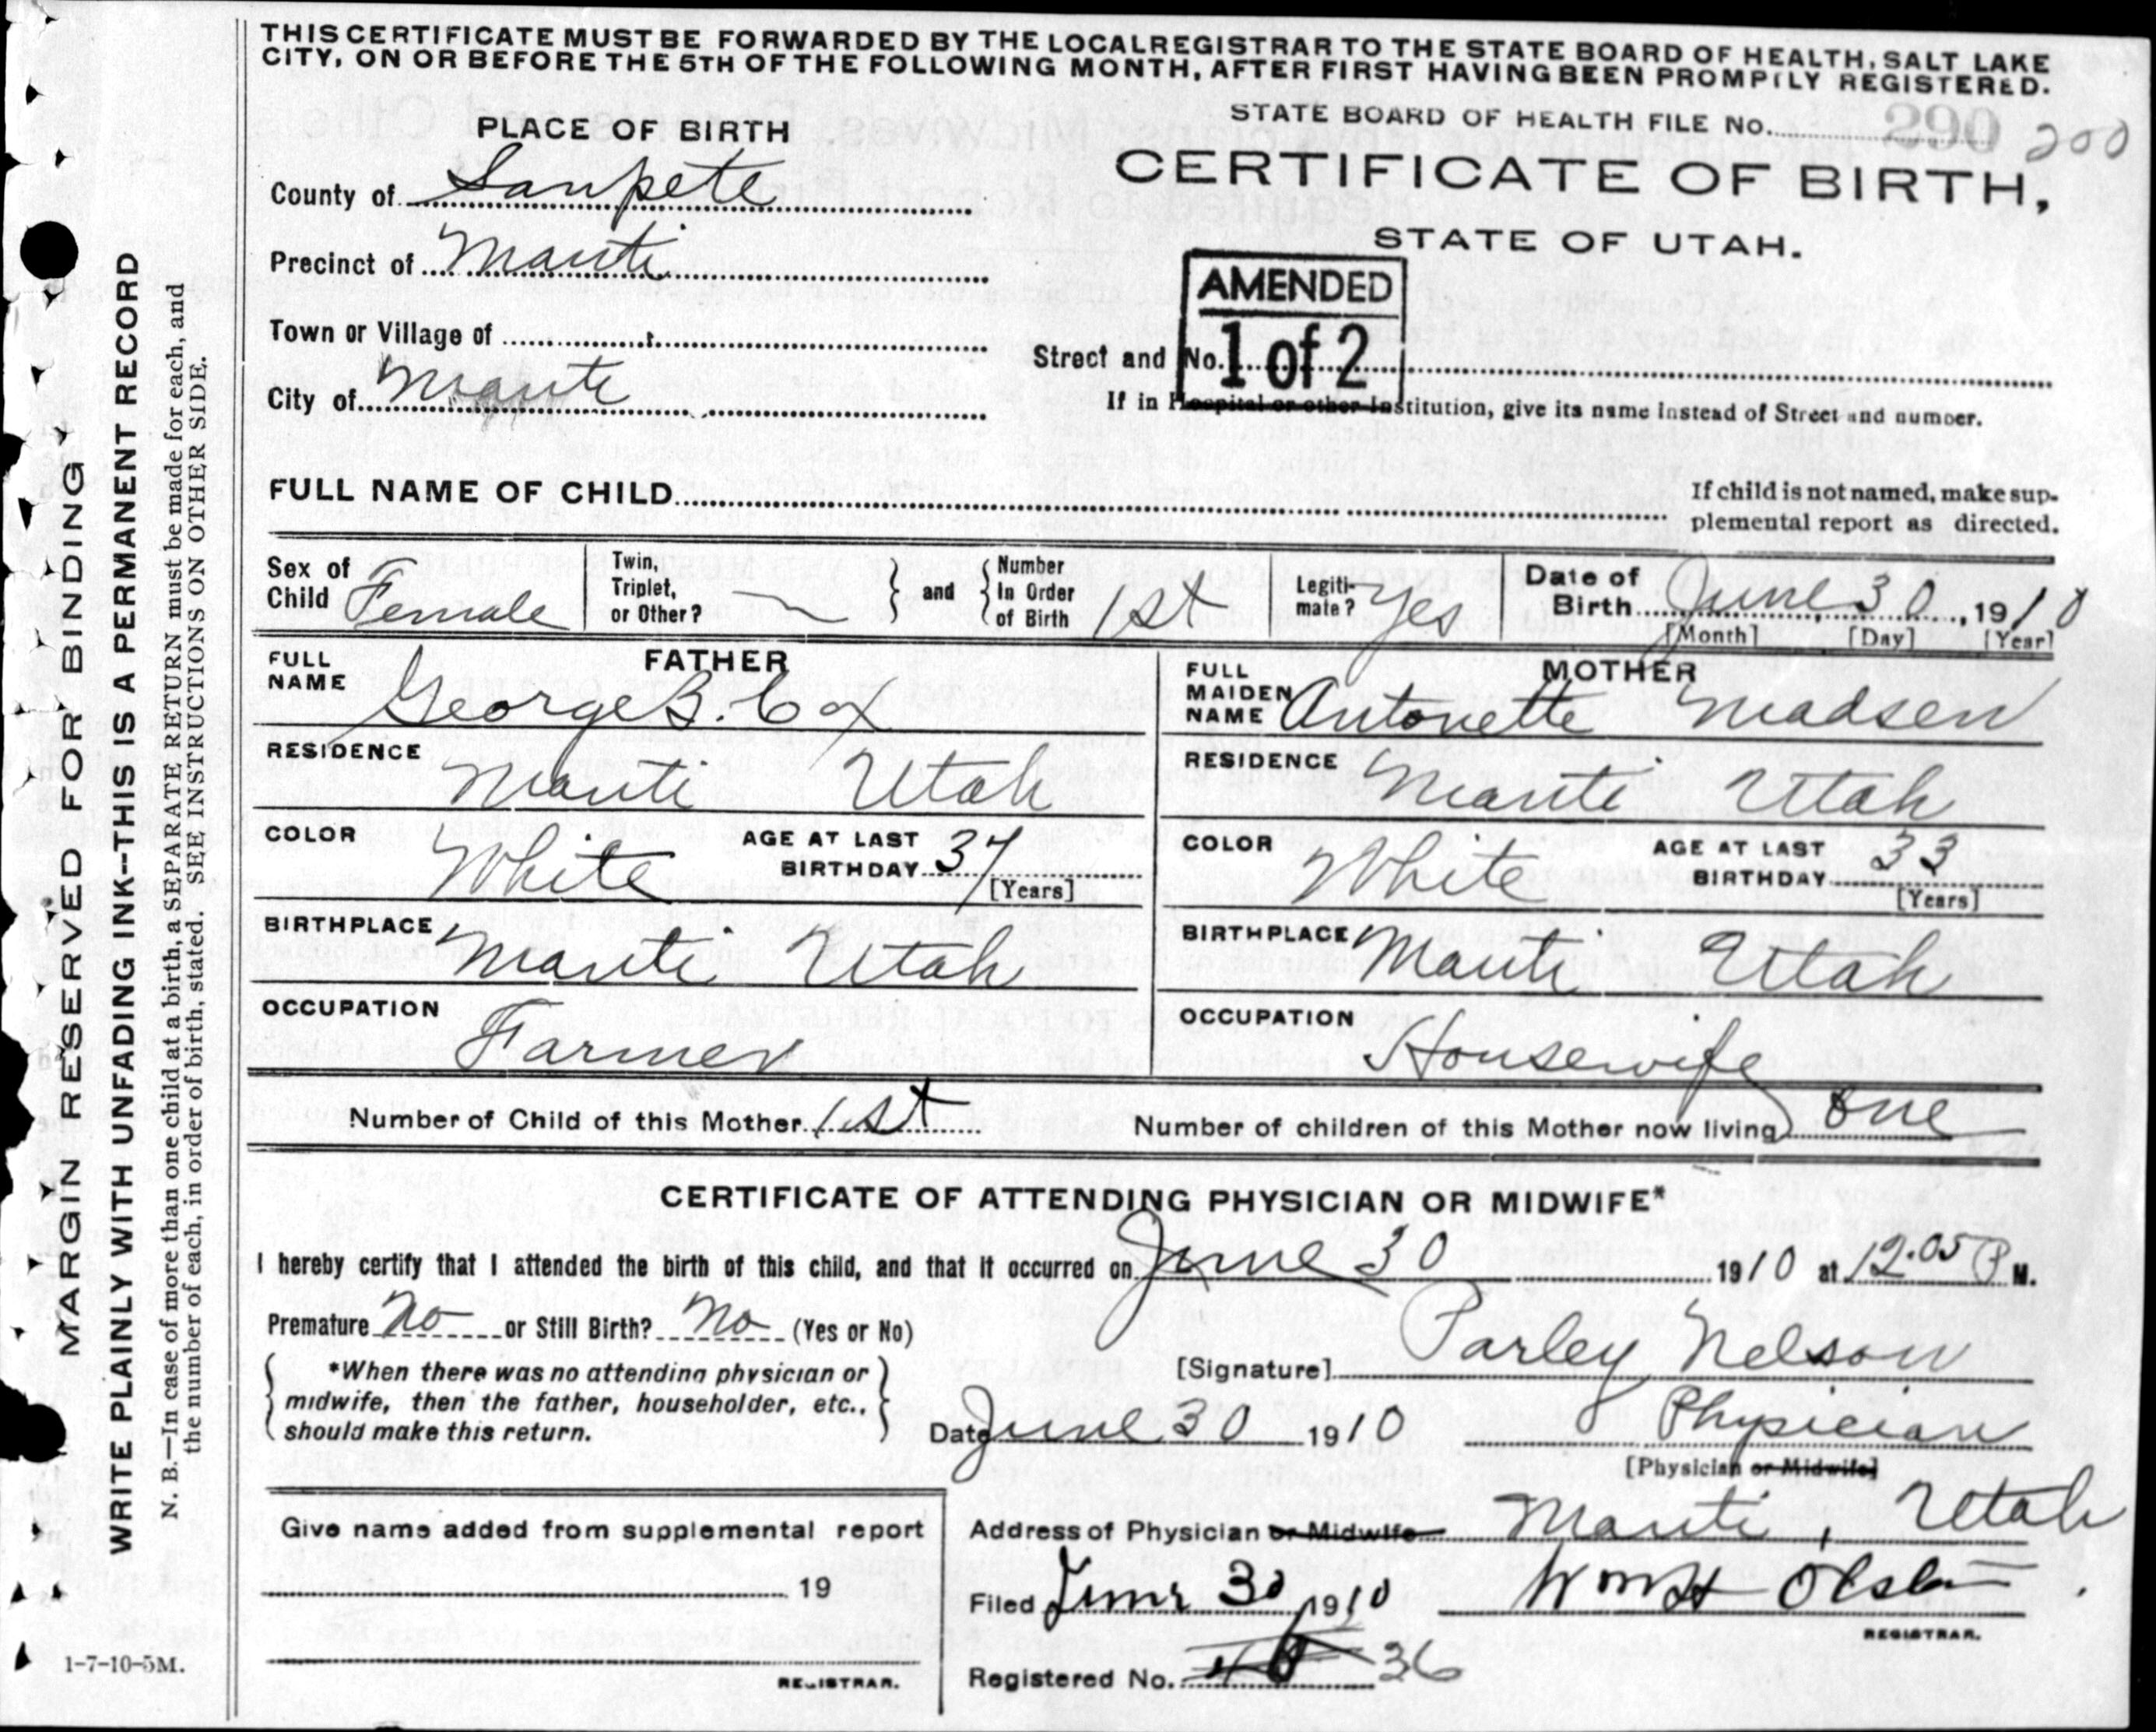 THIS CERTIFICATE MUST BE FORWARDED BY THE LOCAL REGISTRAR TO THE STATE BOARD OF HEALTH, SALT LAKE
CITY, ON OR BEFORE THE 5TH OF THE FOLLOWING MONTH, AFTER FIRST HAVING BEEN PROMPTLY REGISTERED.
STATE BOARD OF HEALTH FILE No. 290 200
PLACE OF BIRTH
CERTIFICATE OF BIRTH,
STATE OF UTAH.
County of Sanpete
Precinct of Manti
AMENDED
1 of 2
Town or Village of
Street and No.
City of Manti
If in Hospital or other Institution, give its name instead of Street and number.
FULL NAME OF CHILD
If child is not named, make sup-
plemental report as directed.
Sex of Child Female
Twin, Triplet, or Other? and Number In Order of Birth 1st
Legiti-mate? Yes
Date of Birth June 30, 1910
[Month] [Day] [Year]
FATHER
FULL NAME George B. Cox
RESIDENCE Manti Utah
COLOR White AGE AT LAST BIRTHDAY 37 [Years]
BIRTHPLACE Manti Utah
OCCUPATION Farmer
MOTHER
FULL MAIDEN NAME Antonette Madsen
RESIDENCE Manti Utah
COLOR White AGE AT LAST BIRTHDAY 33 [Years]
BIRTHPLACE Manti Utah
OCCUPATION Housewife
Number of Child of this Mother 1st Number of children of this Mother now living one
CERTIFICATE OF ATTENDING PHYSICIAN OR MIDWIFE*
I hereby certify that I attended the birth of this child, and that it occurred on June 30 1910 at 12.05 P M.
Premature No or Still Birth? No (Yes or No)
*When there was no attending physician or
midwife, then the father, householder, etc.,
should make this return.
[Signature] Parley Nelson
Date June 30 1910 Physician
[Physician or Midwife]
Give name added from supplemental report
19
REGISTRAR.
Address of Physician or Midwife Manti, Utah
Filed June 30 1910 Wm H Olsen
REGISTRAR.
Registered No. 36
MARGIN RESERVED FOR BINDING
WRITE PLAINLY WITH UNFADING INK--THIS IS A PERMANENT RECORD
N. B.—In case of more than one child at a birth, a SEPARATE RETURN must be made for each, and
the number of each, in order of birth, stated. SEE INSTRUCTIONS ON OTHER SIDE.
1-7-10-5M.